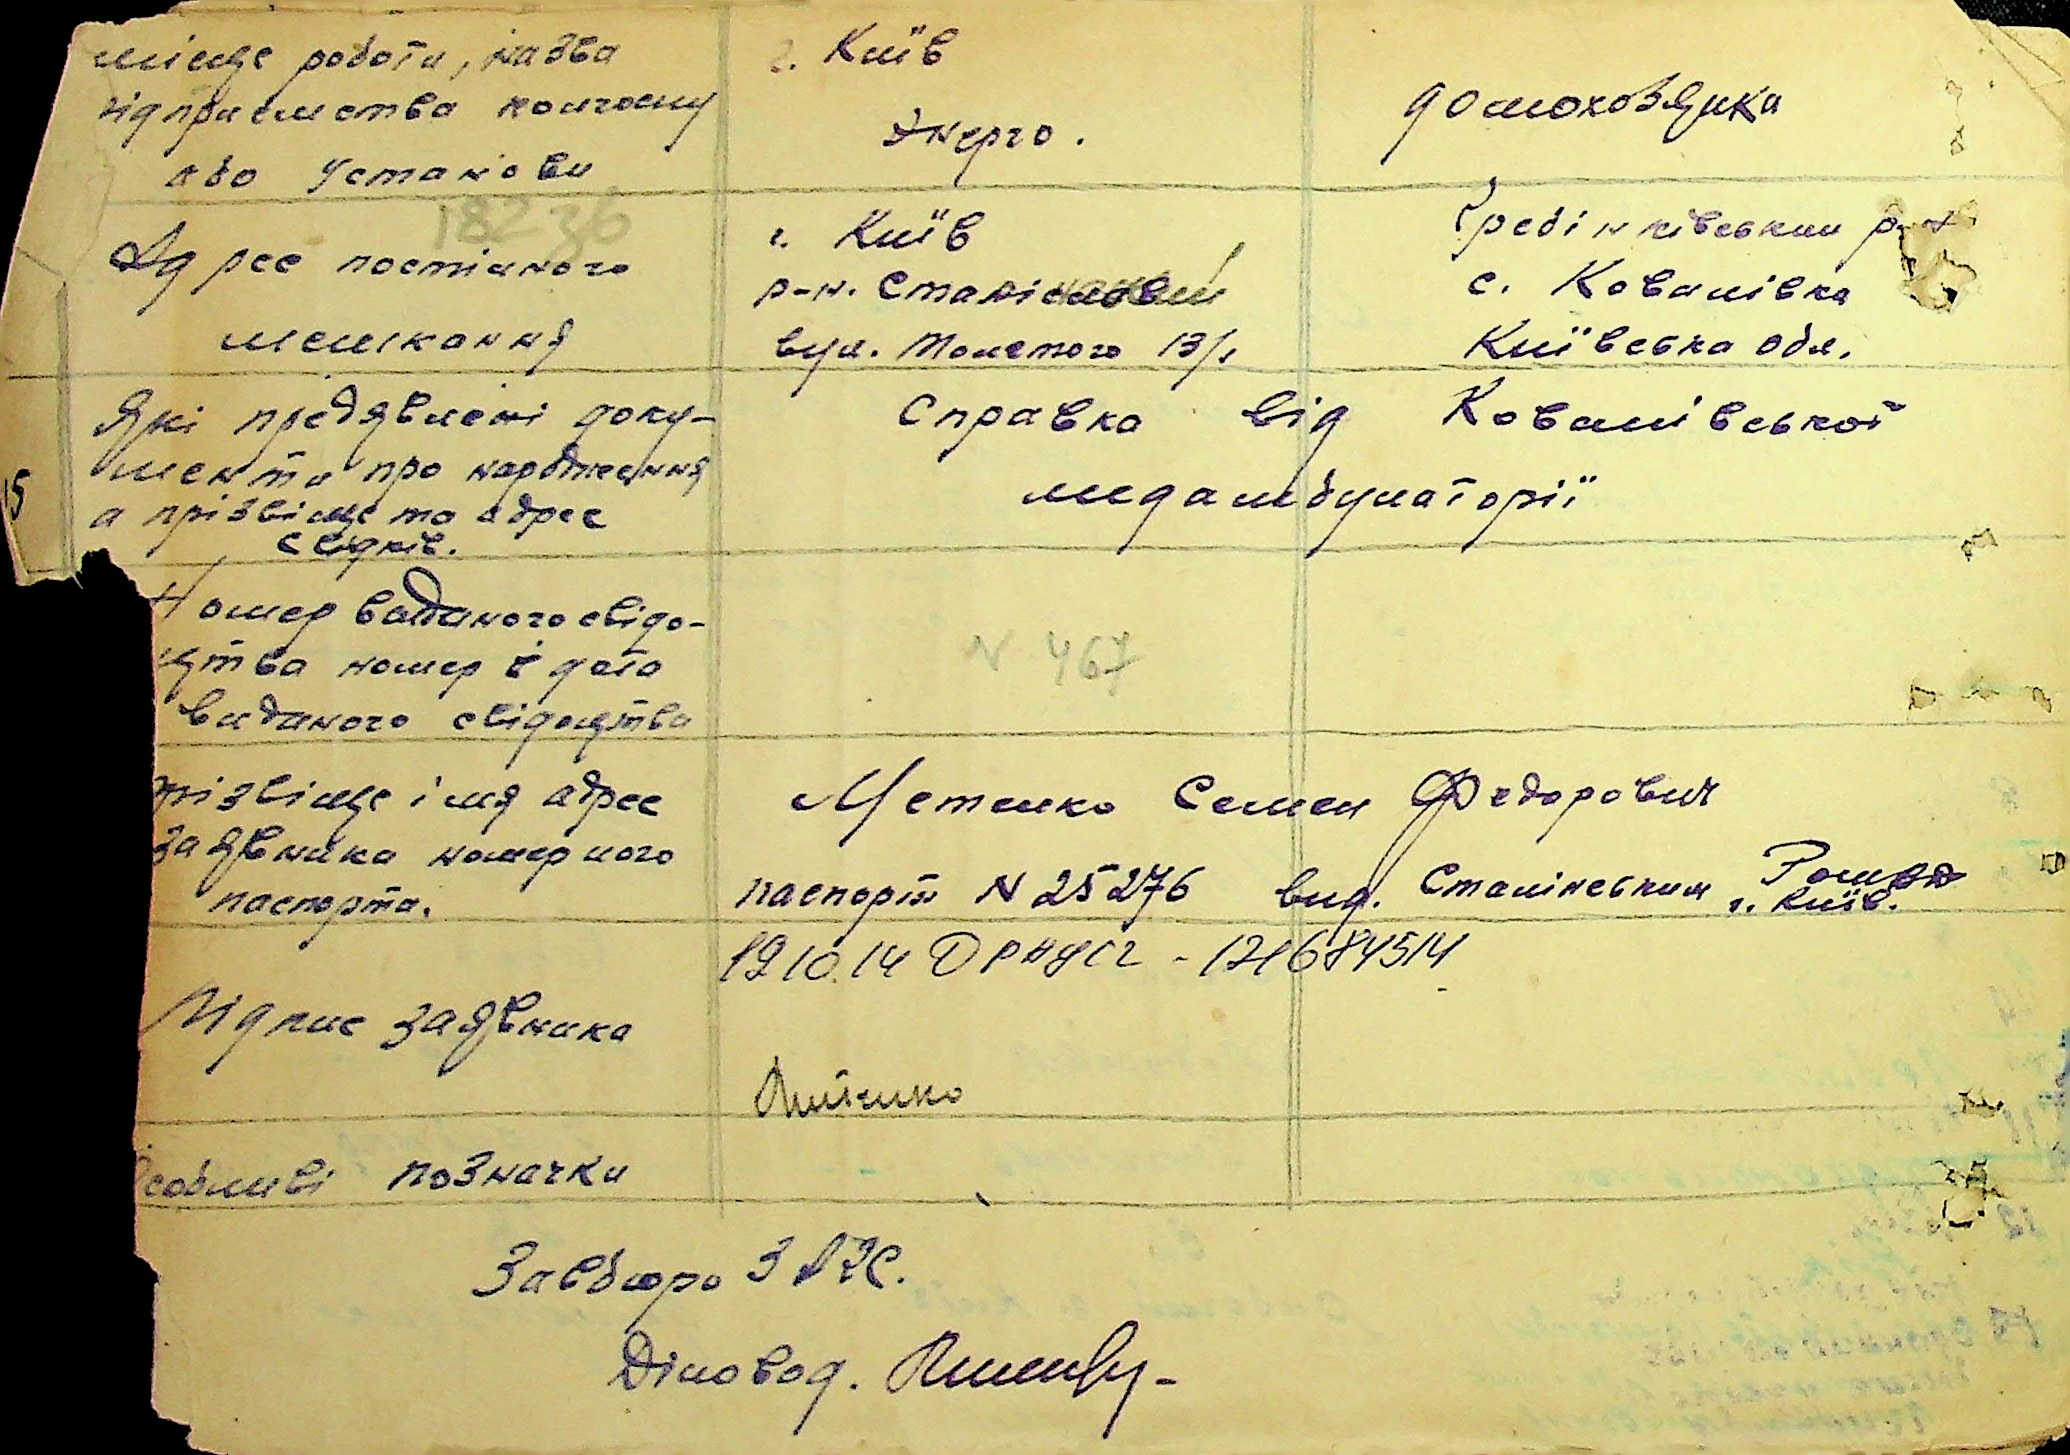 місце роботи, назва
підприємства колгоспу
або установи
г. Київ
Энерго.
домохозяйка
18236
Адрес постійного
мешкання
г. Київ
р-н. Сталінський
вул. Толстого 13/1
Гребінківський р-н
с. Ковалівка
Київська обл.
Які предявлені доку-
менти про народження
а прізвіще та адрес
свідків.
Справка від Ковалівської
медамбулаторії
15
Номер виданого свідо-
цтва номер і дата
виданого свідоцтва
N 467
прізвіще імя адрес
заявника номер иого
паспорта.
Семен Федорович
паспорт N 25276 вид. Сталінським
г. Київ.
19 10.14 ДРАЦСг - 121684514
Підпис заявника
Особливі позначки
Завбюро ЗАГС.
Діловод.